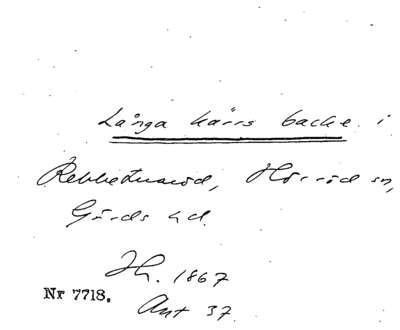 Långa kärrs backe i
Rebbetuaröd, Hörröd sn,
Gärds hd.
Hh. 1867
Nr 7718.
Ant 37